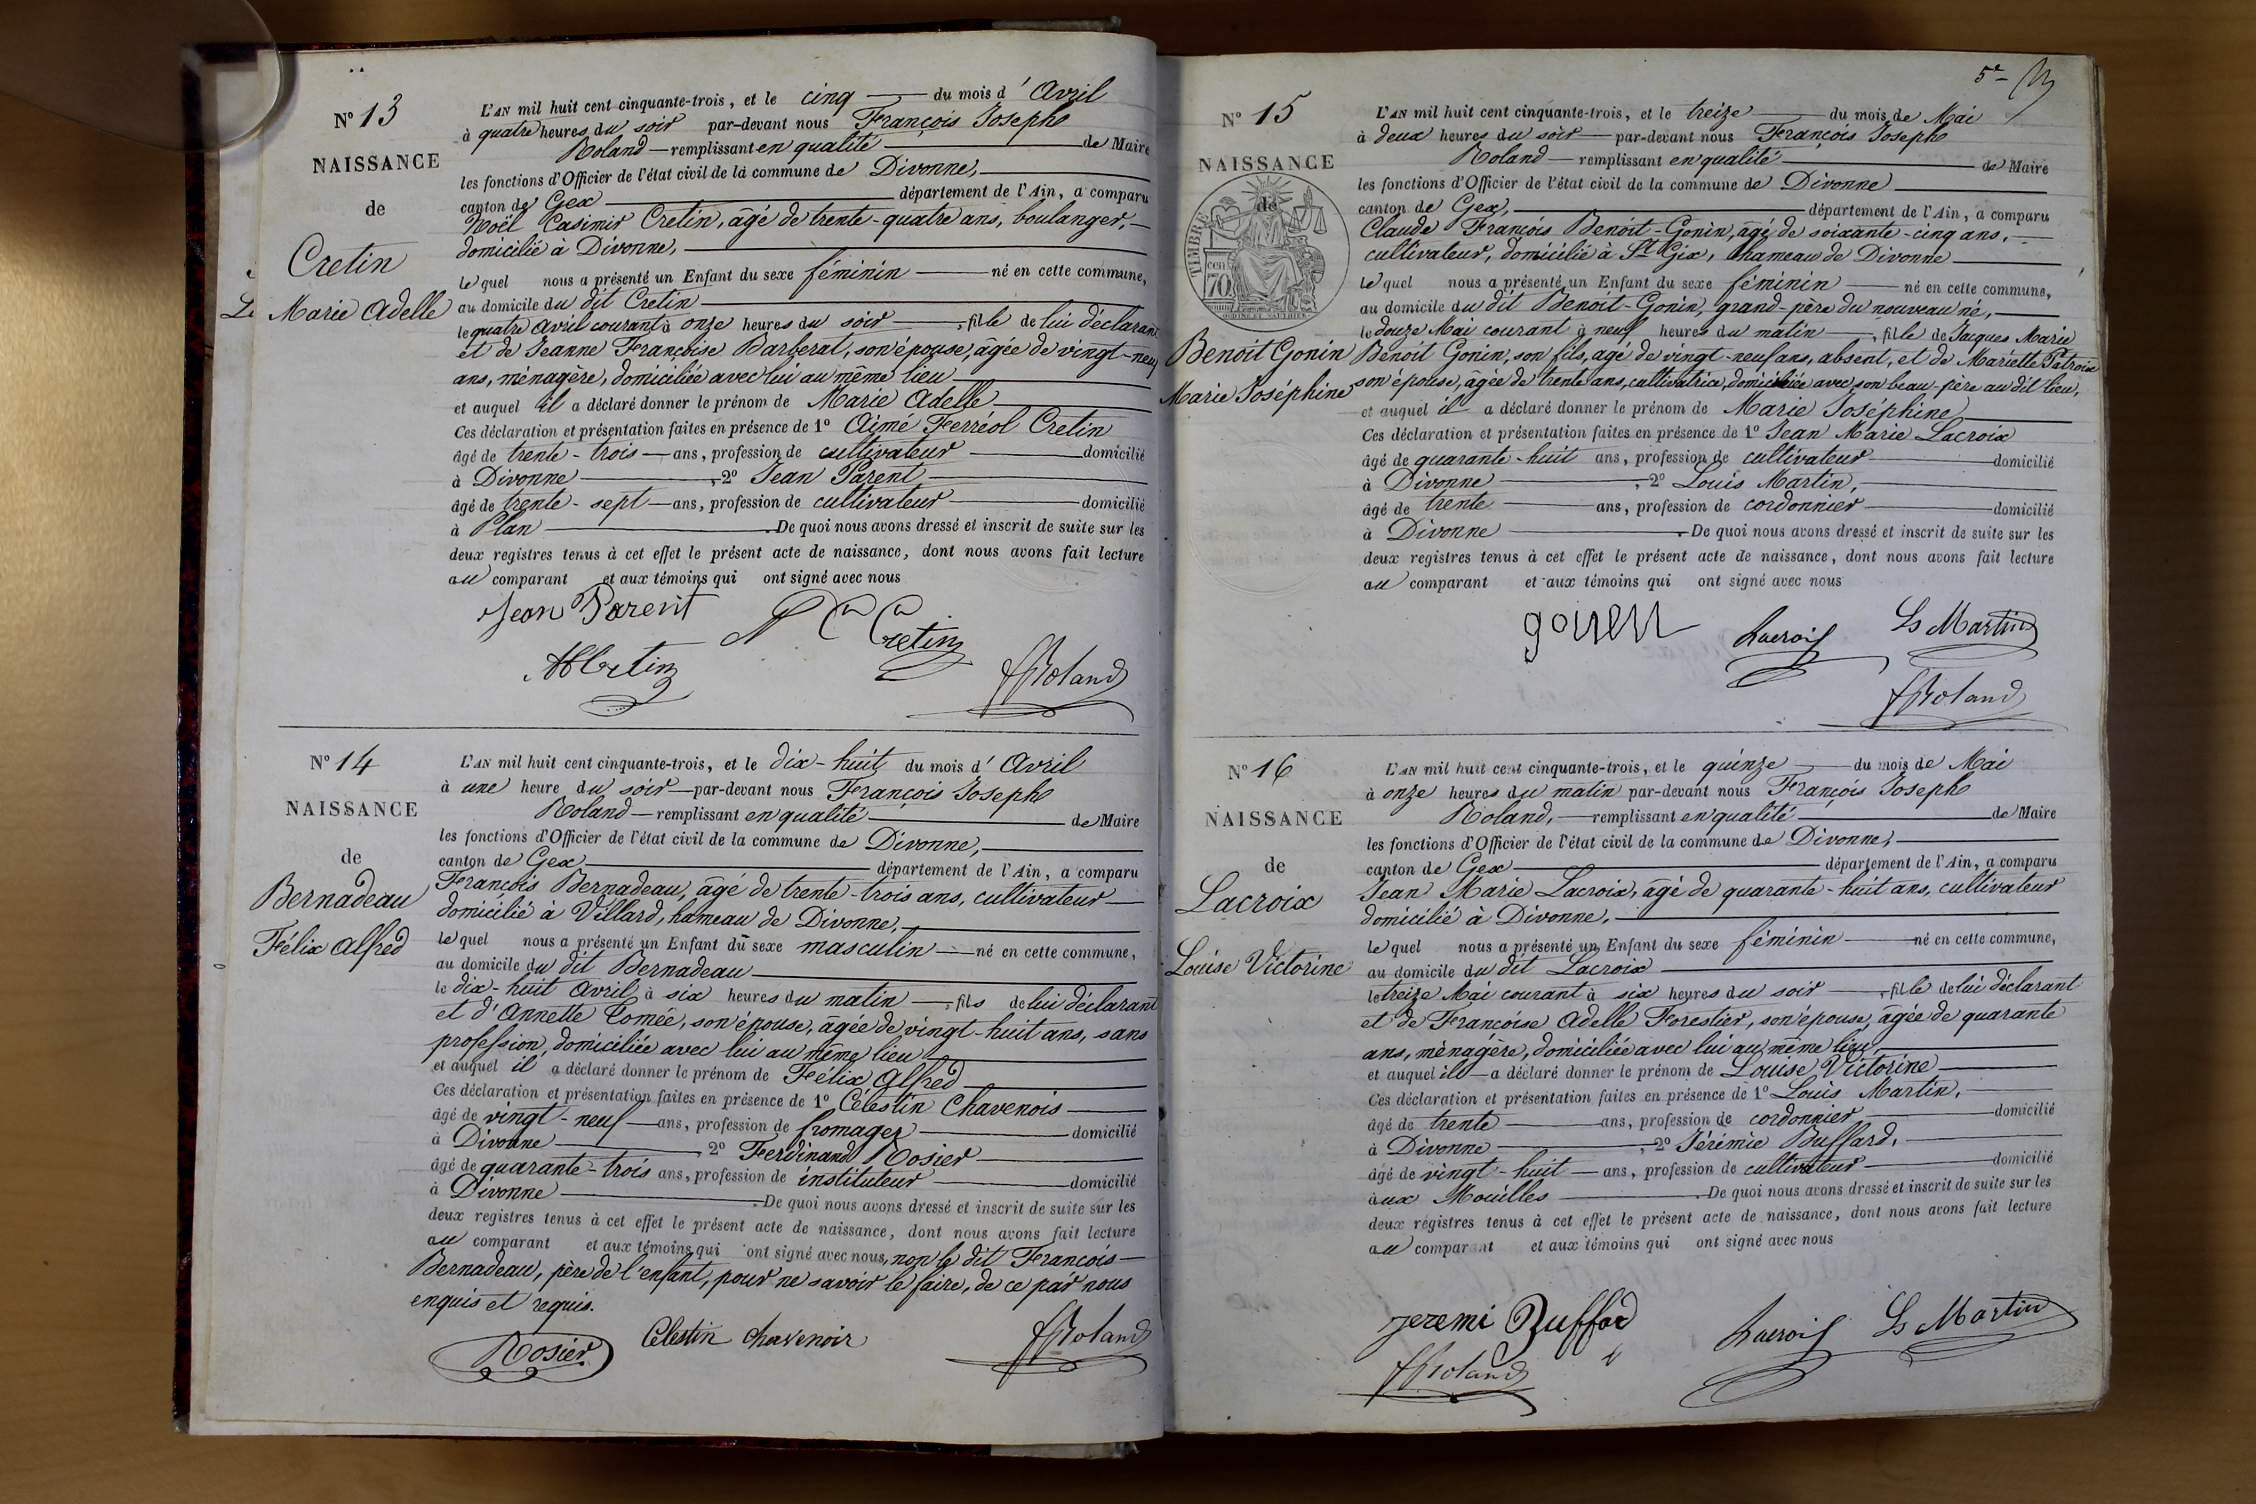 Nº 13
NAISSANCE
de
Cretin
Marie Adelle
L'AN mil huit cent cinquante-trois, et le cinq du mois d'Avril
à quatre heures du soir par-devant nous François Joseph
Roland remplissant en qualité de Maire
les fonctions d'Officier de l'état civil de la commune de Divonne,
canton de Gex département de l'Ain, a comparu
Noël Casimir Cretin, âgé de trente-quatre ans, boulanger,
domicilié à Divonne,
lequel nous a présenté un Enfant du sexe féminin né en cette commune,
au domicile du dit Cretin
le quatre Avril courant à onze heures du soir, fille de lui déclarant
et de Jeanne Françoise Barberat, son épouse, âgée de vingt-neuf
ans, ménagère, domiciliée avec lui au même lieu
et auquel il a déclaré donner le prénom de Marie Adelle
Ces déclaration et présentation faites en présence de 1º Aimé Ferréol Cretin
âgé de trente-trois ans, profession de cultivateur domicilié
à Divonne, 2º Jean Parent
âgé de trente-sept ans, profession de cultivateur domicilié
à Plan. De quoi nous avons dressé et inscrit de suite sur les
deux registres tenus à cet effet le présent acte de naissance, dont nous avons fait lecture
au comparant et aux témoins qui ont signé avec nous
Jean Parent
Cretin
Roland
Nº 14
NAISSANCE
de
Bernadeau
Félix Alfred
L'AN mil huit cent cinquante-trois, et le dix-huit du mois d'Avril
à une heure du soir par-devant nous François Joseph
Roland remplissant en qualité de Maire
les fonctions d'Officier de l'état civil de la commune de Divonne,
canton de Gex département de l'Ain, a comparu
François Bernadeau, âgé de trente-trois ans, cultivateur
domicilié à Villard, hameau de Divonne,
lequel nous a présenté un Enfant du sexe masculin né en cette commune,
au domicile du dit Bernadeau
le dix-huit Avril à six heures du matin, fils de lui déclarant
et d'Annette Comée, son épouse, âgée de vingt-huit ans, sans
profession, domiciliée avec lui au même lieu
et auquel il a déclaré donner le prénom de Félix Alfred
Ces déclaration et présentation faites en présence de 1º Célestin Chavenois
âgé de vingt-neuf ans, profession de fromager domicilié
à Divonne, 2º Ferdinand Rosier
âgé de quarante-trois ans, profession de instituteur domicilié
à Divonne. De quoi nous avons dressé et inscrit de suite sur les
deux registres tenus à cet effet le présent acte de naissance, dont nous avons fait lecture
au comparant et aux témoins qui ont signé avec nous, non le dit François
Bernadeau, père de l'enfant, pour ne savoir le faire, de ce par nous
enquis et requis.
Rosier
Célestin chavenoir
Roland
5e
Nº 15
NAISSANCE
de
TIMBRE
cen
70
Benoit Gonin
Marie Joséphine
L'AN mil huit cent cinquante-trois, et le treize du mois de Mai
à deux heures du soir par-devant nous François Joseph
Roland remplissant en qualité de Maire
les fonctions d'Officier de l'état civil de la commune de Divonne
canton de Gex, département de l'Ain, a comparu
Claude François Benoit-Gonin, âgé de soixante-cinq ans,
cultivateur, domicilié à St Gix, hameau de Divonne
lequel nous a présenté un Enfant du sexe féminin né en cette commune,
au domicile du dit Benoit-Gonin, grand-père du nouveau né,
le douze Mai courant à neuf heures du matin, fille de Jacques Marie
Benoit Gonin, son fils, âgé de vingt-neuf ans, absent, et de Mariette Patroix
son épouse, âgée de trente ans, cultivatrice, domiciliée avec son beau-père au dit lieu,
et auquel il a déclaré donner le prénom de Marie Joséphine
Ces déclaration et présentation faites en présence de 1º Jean Marie Lacroix
âgé de quarante-huit ans, profession de cultivateur domicilié
à Divonne, 2º Louis Martin,
âgé de trente ans, profession de cordonnier domicilié
à Divonne. De quoi nous avons dressé et inscrit de suite sur les
deux registres tenus à cet effet le présent acte de naissance, dont nous avons fait lecture
au comparant et aux témoins qui ont signé avec nous
gonen
Lacroix
Ls Martin
Roland
Nº 16
NAISSANCE
de
Lacroix
Louise Victorine
L'AN mil huit cent cinquante-trois, et le quinze du mois de Mai
à onze heures du matin par-devant nous François Joseph
Roland, remplissant en qualité de Maire
les fonctions d'Officier de l'état civil de la commune de Divonne,
canton de Gex département de l'Ain, a comparu
Jean Marie Lacroix, âgé de quarante-huit ans, cultivateur
domicilié à Divonne,
lequel nous a présenté un Enfant du sexe féminin né en cette commune,
au domicile du dit Lacroix
le treize Mai courant à six heures du soir, fille de lui déclarant
et de Françoise Adelle Forestier, son épouse, âgée de quarante
ans, ménagère, domiciliée avec lui au même lieu
et auquel il a déclaré donner le prénom de Louise Victorine
Ces déclaration et présentation faites en présence de 1º Louis Martin,
âgé de trente ans, profession de cordonnier domicilié
à Divonne, 2º Jérémie Buffard,
âgé de vingt-huit ans, profession de cultivateur domicilié
aux Mouilles. De quoi nous avons dressé et inscrit de suite sur les
deux registres tenus à cet effet le présent acte de naissance, dont nous avons fait lecture
au comparant et aux témoins qui ont signé avec nous
Jeremi Buffad
Lacroix
Ls Martin
Roland